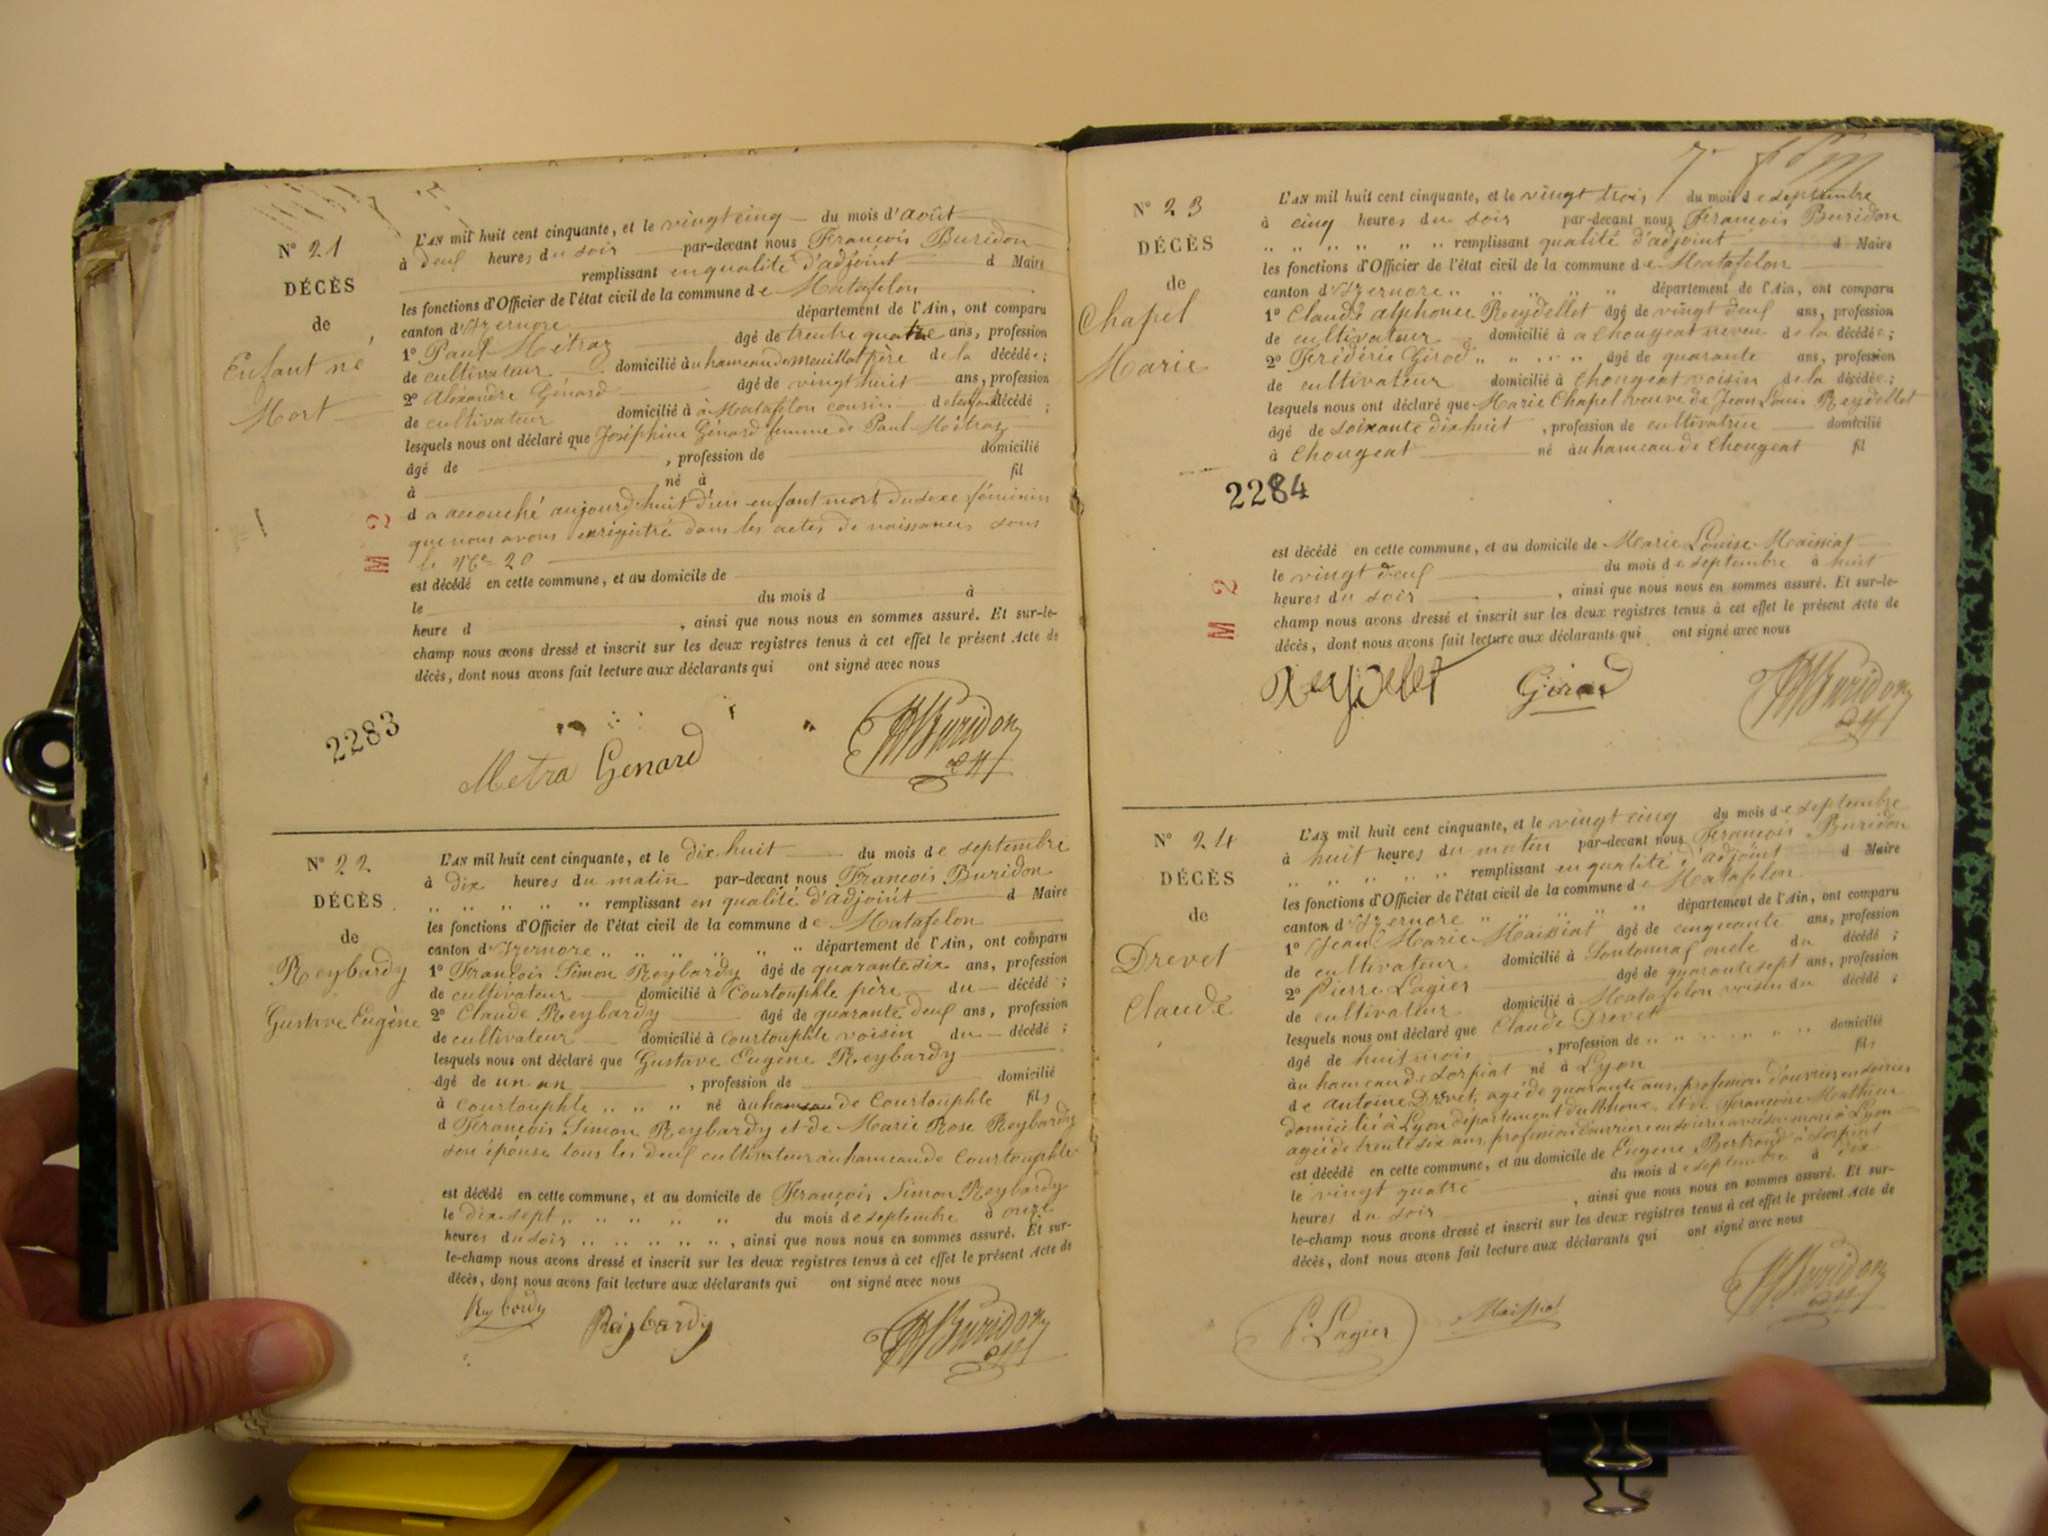 N° 21
DÉCÈS
de
Enfant né
Mort
L'AN mil huit cent cinquante, et le vingt cinq du mois d'août
à deux heures du soir par-devant nous François Buridon
remplissant en qualité d'adjoint d Maire
les fonctions d'Officier de l'état civil de la commune de Matafelon
canton d'Izernore département de l'Ain, ont comparu
1° Paul Métraz âgé de trentre quatre ans, profession
de cultivateur domicilié au hameau de mouillat père de la décédée;
2° Aléxandre Génard âgé de vingt huit ans, profession
de cultivateur domicilié à à Matafelon cousin de décédé;
lesquels nous ont déclaré que Joséphine Génard femme de Paul Métraz
âgé de , profession de domicilié
à né à fil
d a accouché aujourd'huit d'un enfant mort du sexe féminin
que nous avons enrigistré dans les actes de naissances sous
le N° 20
est décédé en cette commune, et au domicile de
le du mois d à
heure d , ainsi que nous nous en sommes assuré. Et sur-le-
champ nous avons dressé et inscrit sur les deux registres tenus à cet effet le présent Acte de
décès, dont nous avons fait lecture aux déclarants qui ont signé avec nous
M 2
2283
Metra Genard Buridon
N° 22
DÉCÈS
de
Reybardy
Gustave Eugène
L'AN mil huit cent cinquante, et le dix huit du mois de septembre
à dix heures du matin par-devant nous François Buridon
remplissant en qualité d'adjoint d Maire
les fonctions d'Officier de l'état civil de la commune de Matafelon
canton d'Izernore département de l'Ain, ont comparu
1° François Simon Reybardy âgé de quarante six ans, profession
de cultivateur domicilié à Courtouphle père du décédé;
2° Claude Reybardy âgé de quarante deux ans, profession
de cultivateur domicilié à Courtouphle voisin du décédé;
lesquels nous ont déclaré que Gustave Eugène Reybardy
âgé de un an , profession de domicilié
à Courtouphle né au hameau de Courtouphle fils
d François Simon Reybardy et de Marie Rose Reybardy
son épouse tous les deux cultivateur au hameau de Courtouphle
est décédé en cette commune, et au domicile de François Simon Reybardy
le dix sept du mois de septembre à onze
heures du soir , ainsi que nous nous en sommes assuré. Et sur-
le-champ nous avons dressé et inscrit sur les deux registres tenus à cet effet le présent Acte de
décès, dont nous avons fait lecture aux déclarants qui ont signé avec nous
Reybardy Reybardy Buridon
N° 23
DÉCÈS
de
Chapel
Marie
L'AN mil huit cent cinquante, et le vingt trois du mois de septembre
à cinq heures du soir par-devant nous François Buridon
remplissant qualité d'adjoint d Maire
les fonctions d'Officier de l'état civil de la commune de Matafelon
canton d'Izernore département de l'Ain, ont comparu
1° Claude alphonse Reydellet âgé de vingt deux ans, profession
de cultivateur domicilié à à Chougeat neveu de la décédée;
2° Fridéric Girod âgé de quarante ans, profession
de cultivateur domicilié à Chougeat voisin de la décédée;
lesquels nous ont déclaré que Marie Chapel veuve de Jean Louis Reydellet
âgé de soixante dix huit , profession de cultivatrice domicilié
à Chougeat né au hameau de Chougeat fil
2284
est décédé en cette commune, et au domicile de Marie Louise Maissiat
le vingt deux du mois de septembre à huit
heures du soir , ainsi que nous nous en sommes assuré. Et sur-le-
champ nous avons dressé et inscrit sur les deux registres tenus à cet effet le présent Acte de
décès, dont nous avons fait lecture aux déclarants qui ont signé avec nous
M 2
Reydelet Girod Buridon
N° 24
DÉCÈS
de
Drevet
Claude
L'AN mil huit cent cinquante, et le vingt cinq du mois de septembre
à huit heures du matin par-devant nous François Buridon
remplissant en qualité d'adjoint d Maire
les fonctions d'Officier de l'état civil de la commune de Matafelon
canton d'Izernore département de l'Ain, ont comparu
1° Jean Marie Maissiat âgé de cinquante ans, profession
de cultivateur domicilié à oncle du décédé;
2° Pierre Lagier âgé de quarante sept ans, profession
de cultivateur domicilié à Matafelon voisin du décédé;
lesquels nous ont déclaré que Claude Drevet
âgé de huit mois , profession de domicilié
au hameau de Corpiat né à Lyon fils
de Antoine Drevet, agé de quarante ans, profession d'ouvrier en soieries
domicilié à Lyon département du Rhone, et de Françoise
agée de trente six ans, profession d'ouvrière en soieries à Lyon
est décédé en cette commune, et au domicile de Eugène Bertrand à Corpiat
le vingt quatre du mois de septembre à dix
heures du soir , ainsi que nous nous en sommes assuré. Et sur-
le-champ nous avons dressé et inscrit sur les deux registres tenus à cet effet le présent Acte de
décès, dont nous avons fait lecture aux déclarants qui ont signé avec nous
P. Lagier Maissiat Buridon